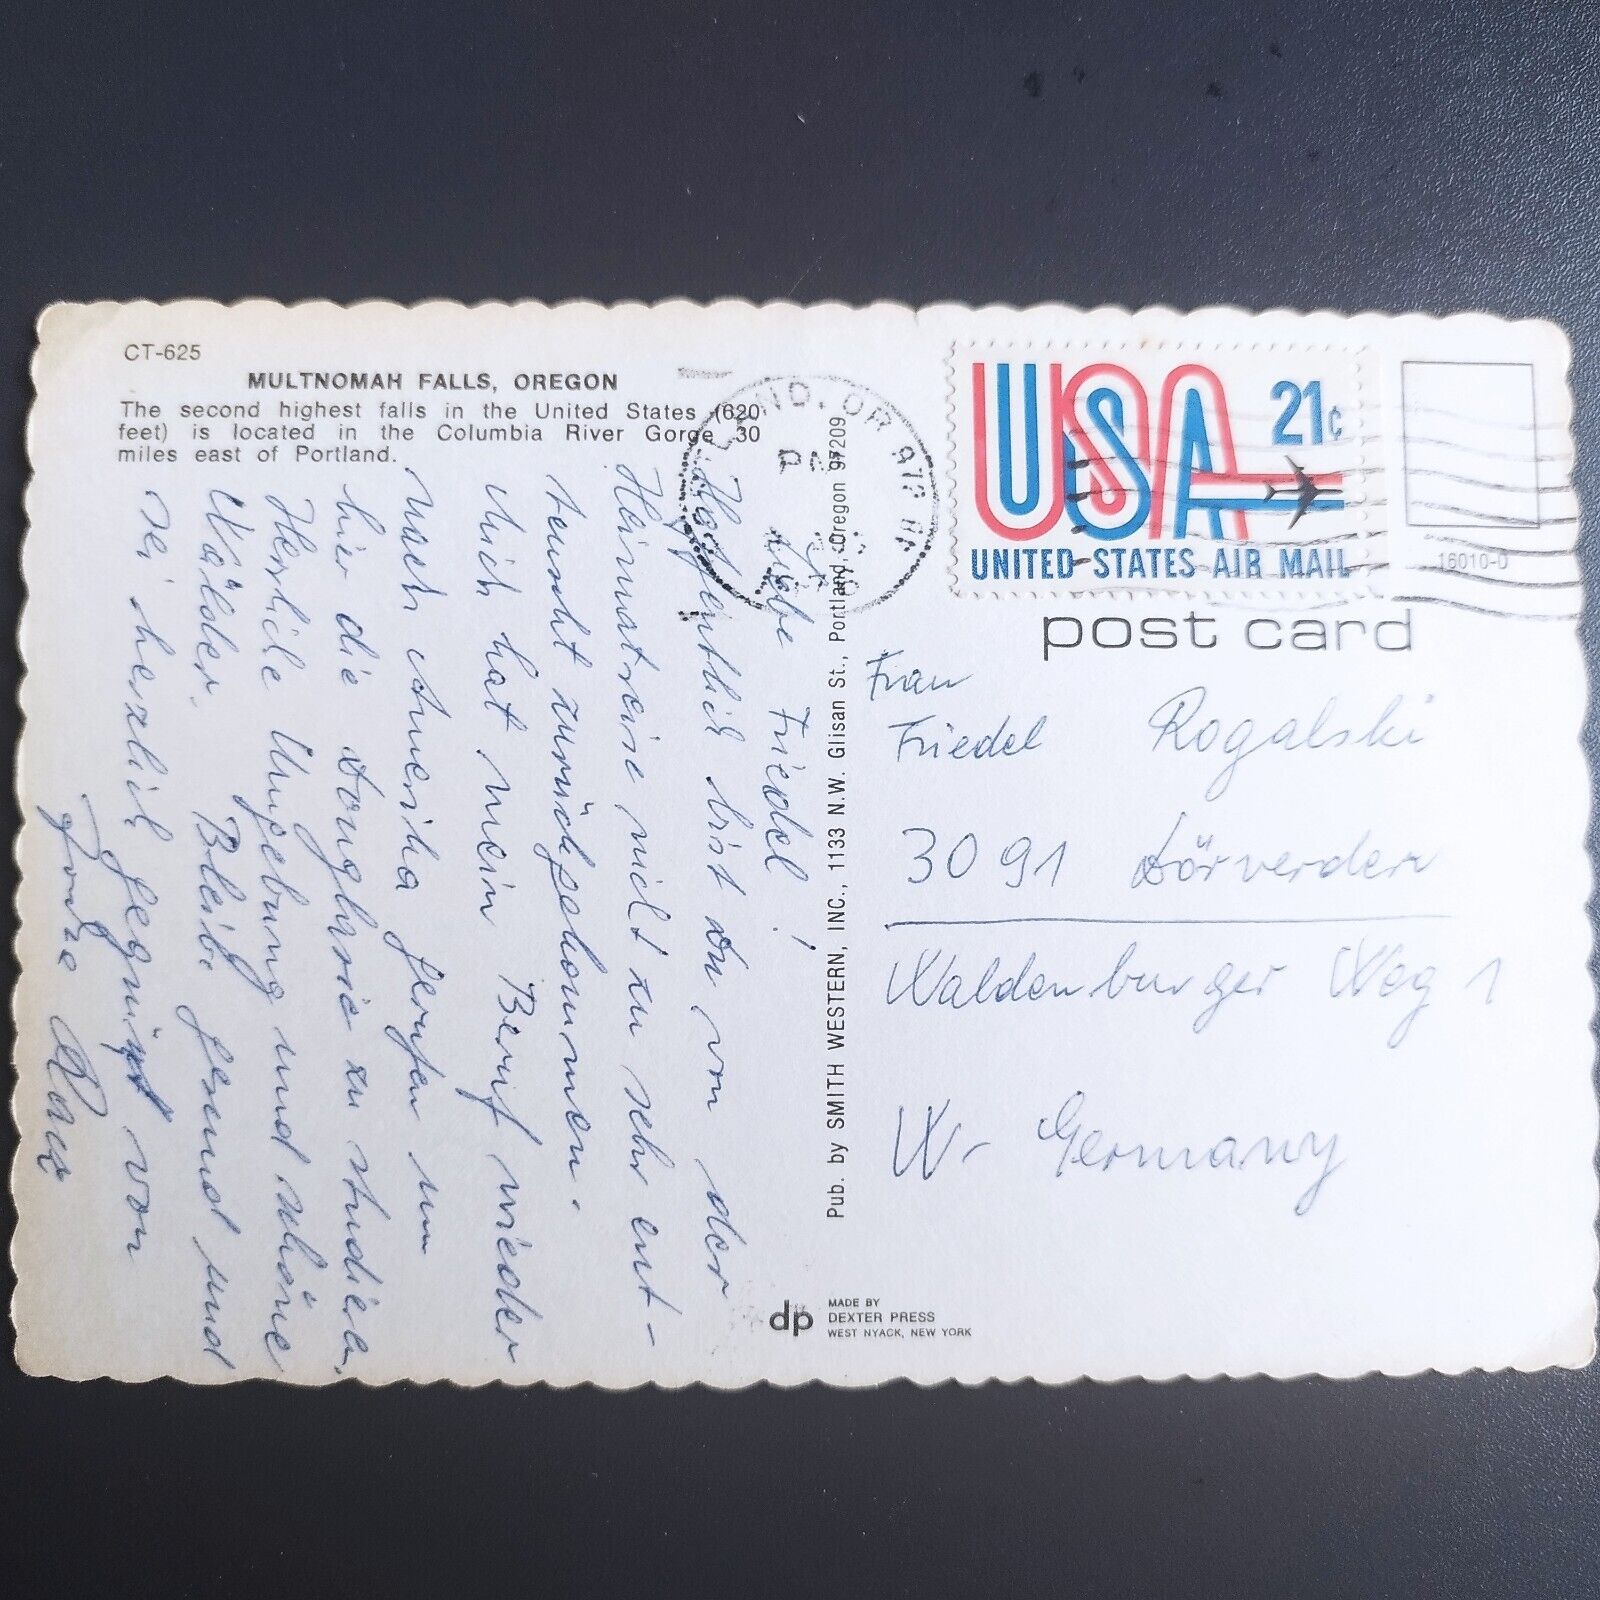 CT-625
MULTNOMAH FALLS, OREGON
The second highest falls in the United States (620
feet) is located in the Columbia River Gorge 30
miles east of Portland.
Liebe Friedel!
Hoffentlich bist du von der
Heimatreise nicht zu sehr ent-
teuscht zurückgekommen.
Mich hat mein Beruf wieder
nach Amerika gerufen um
hier die Douglasie zu studieren.
Herrliche Umgebung und schöne
Wälder. Bleibe gesund und
sei herzlich gegrüßt von
Pub. by SMITH WESTERN, INC., 1133 N.W. Glisan St., Portland, Oregon 97209
OR
USA
21c
UNITED STATES AIR MAIL
16010-D
post card
Frau
Friedel Rogalski
3091 Dörverden
Waldenburger Weg 1
W- Germany
dp
MADE BY
DEXTER PRESS
WEST NYACK, NEW YORK